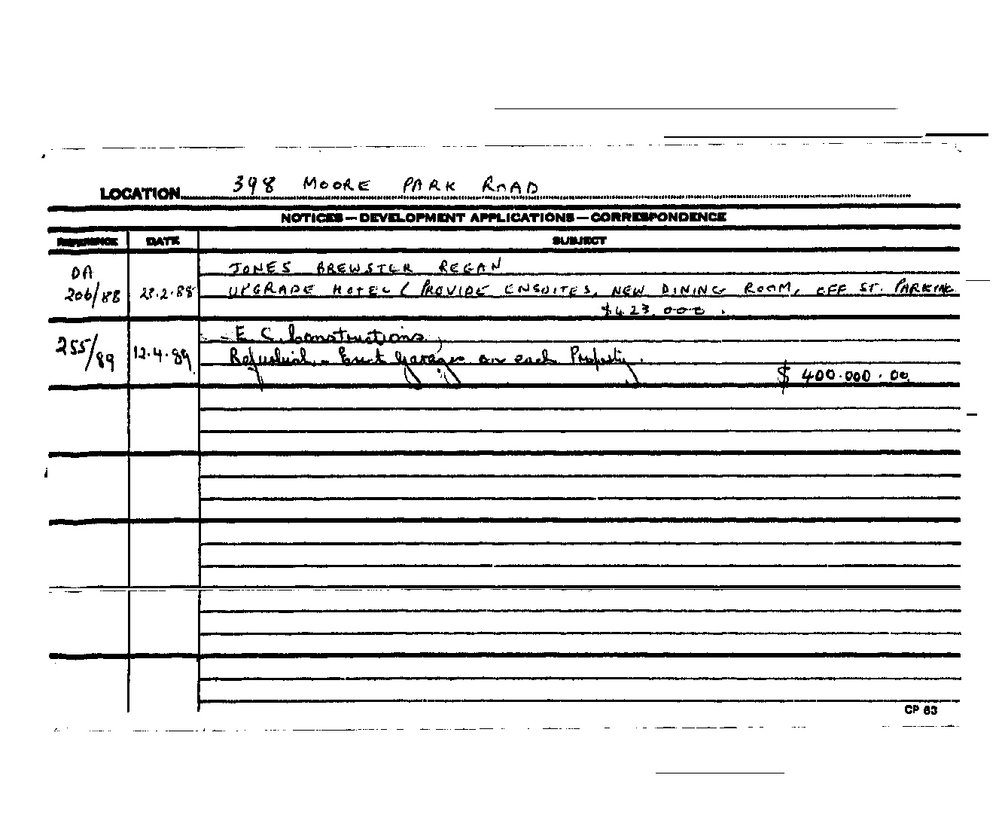 LOCATION 398 MOORE PARK ROAD
NOTICES — DEVELOPMENT APPLICATIONS — CORRESPONDENCE
REFERENCE DATE SUBJECT
DA JONES BREWSTER REGAN
206/88 23.2.88 UPGRADE HOTEL ( PROVIDE ENSUITES, NEW DINING ROOM, OFF ST. PARKING
$423,000.
255/89 12.4.89 E. C. Constructions,
Refurbish - Erect garages on each Property.
$ 400.000.00
CP 63